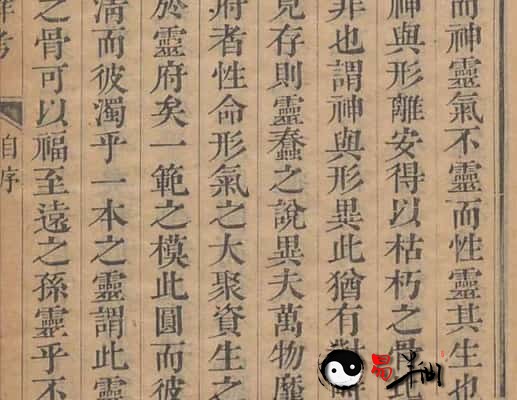 而神靈氣不靈而性靈其生也
神與形離安得以枯朽之骨
非也謂神與形異此猶有對
見存則靈蠢之說異夫萬物靡
府者性命形氣之大聚資生之
於靈府矣一範之模此圓而彼
清而彼濁乎一本之靈謂此靈
之骨可以福至遠之孫靈乎不
考
自序
易